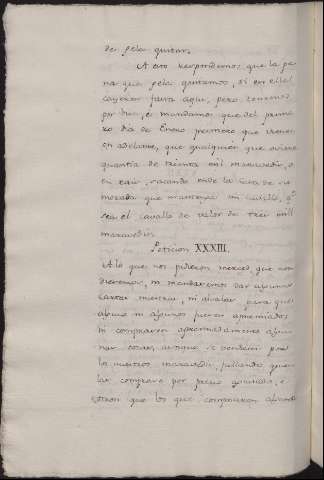 de gela quitar.
A esto respondemos que la pe
na que gela quitamos, si en ella
cayeron fasta aqui, pero tenemos
por bien, e mandamos que del prime
ro dia de Enero primero que viene
en adelante, que qualquier que oviere
quantia de treinta mil maravedis, o
en cair, sacando ende la casa de su
morada que mantenga un cavallo, q.e
sea el cavallo de valor de tres mill
maravedis.
Peticion XXXIII.
A lo que nos pidieron merced, que non
diesemos, ni mandaremos dar algunas
cartas nuestras, ni alvalas para que
alguno ni algunos fueren apremiados
ni compraren apremiadamente algu
nas cosas, aunque se vendan por
los nuestros maravedis, fallando quien
las comprare por precio aguisado, e
otrosi que los que compraron algunas